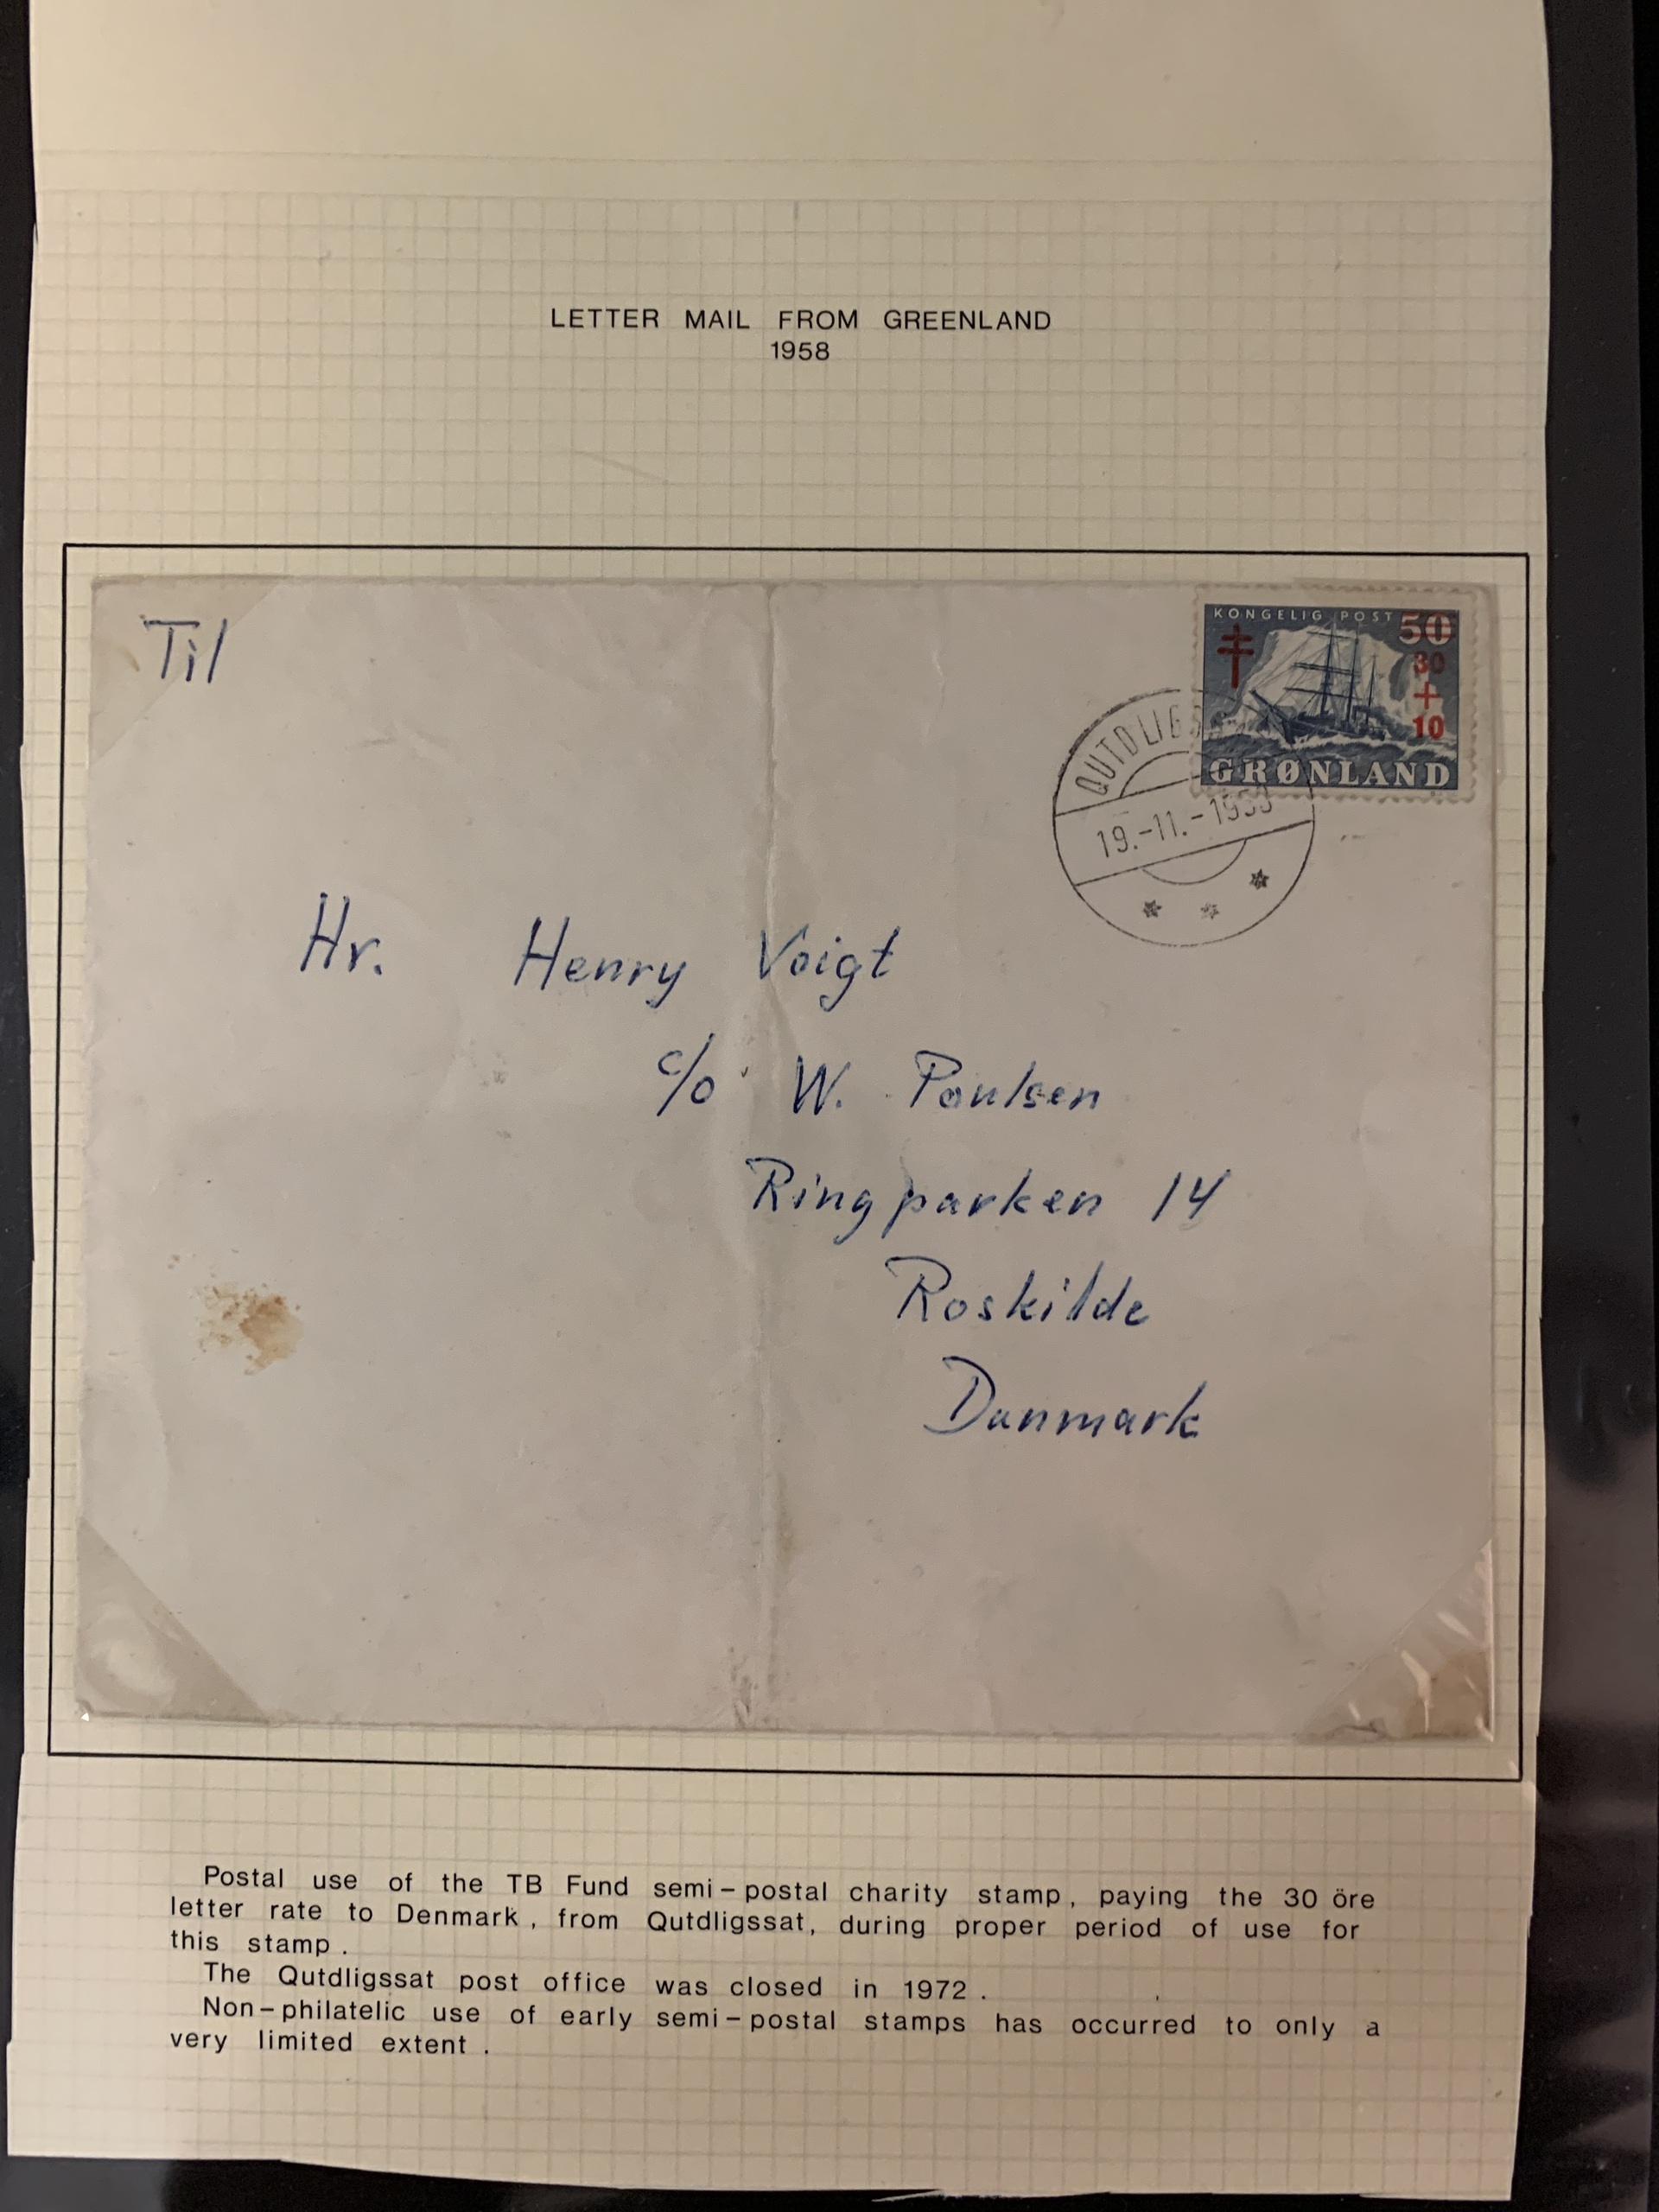 LETTER MAIL FROM GREENLAND
1958
Til
KONGELIG POST 50
30
+
10
GRØNLAND
19.-11.-
Hr. Henry Voigt
c/o W. Poulsen
Ringparken 14
Roskilde
Danmark
Postal use of the TB Fund semi-postal charity stamp, paying the 30 öre
letter rate to Denmark, from Qutdligssat, during proper period of use for
this stamp.
The Qutdligssat post office was closed in 1972.
Non-philatelic use of early semi-postal stamps has occurred to only a
very limited extent.